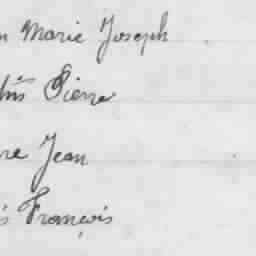 n Marie Joseph
Pierre
re Jean
s François